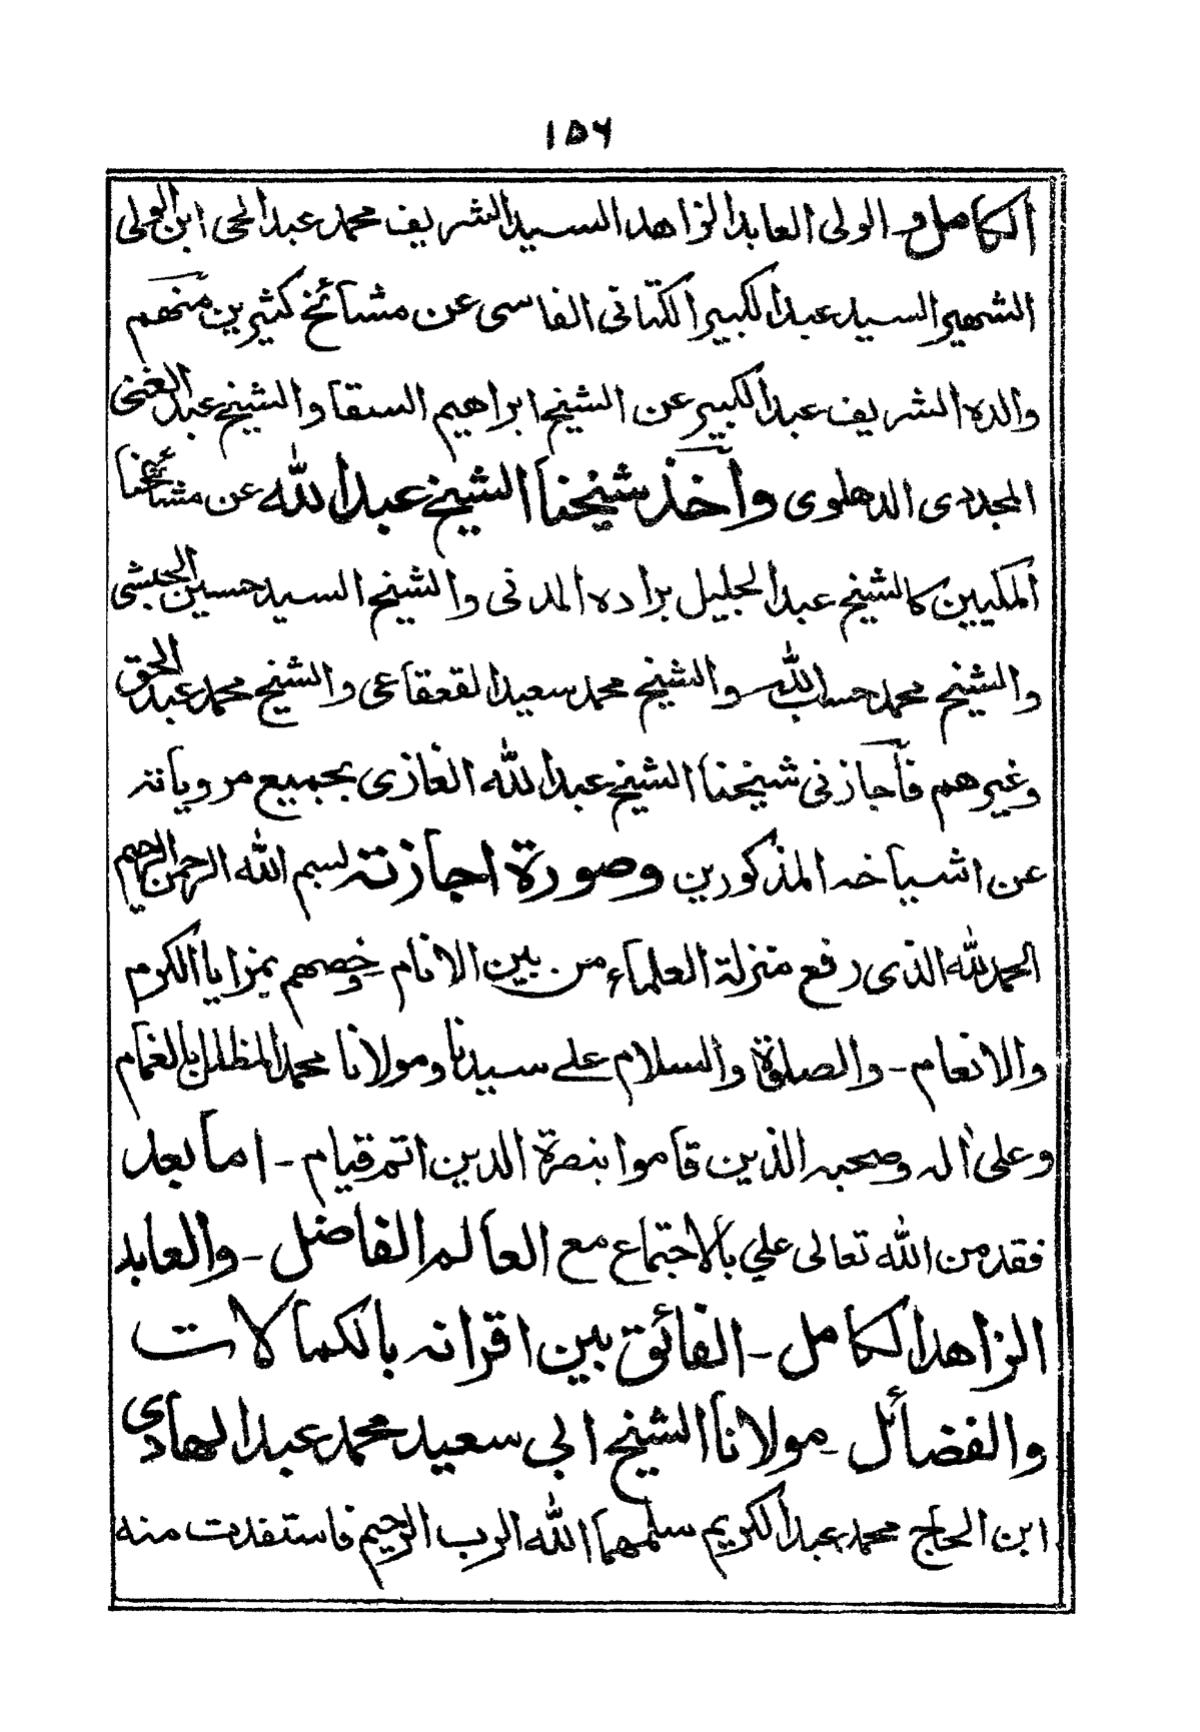 ١٥٦
الكامل و الولى العابد الزاهد السيد الشريف محمد عبد الحى ابن الولى
الشهير السيد عبد الكبير الكتانى الفاسى عن مشائخ كثيرين منهم
والده الشريف عبد الكبير عن الشيخ ابراهيم السقا والشيخ عبد الغنى
المجددى الدهلوى وأخذ شيخنا الشيخ عبد الله عن مشائخنا
المكيين كالشيخ عبد الجليل براده المدنى والشيخ السيد حسين الحبشى
والشيخ محمد حسب الله والشيخ محمد سعيد القعقاعى والشيخ محمد عبد الحق
وغيرهم فأجازنى شيخنا الشيخ عبد الله الغازى بجميع مروياته
عن اشياخه المذكورين وصورة اجازته بسم الله الرحمن الرحيم
الحمد لله الذى رفع منزلة العلماء من بين الانام وخصهم بمزايا الكرم
والانعام - والصلوة والسلام على سيدنا ومولانا محمد المظلل بالغمام
وعلى أله وصحبه الذين قاموا بنصرة الدين اتم قيام - اما بعد
فقد من الله تعالى علي بالاجتماع مع العالم الفاضل - والعابد
الزاهد الكامل - الفائق بين اقرانه بالكمالات
والفضائل - مولانا الشيخ ابى سعيد محمد عبد الهادى
ابن الحاج محمد عبد الكريم سلمهما الله الرب الرحيم فاستفدت منه